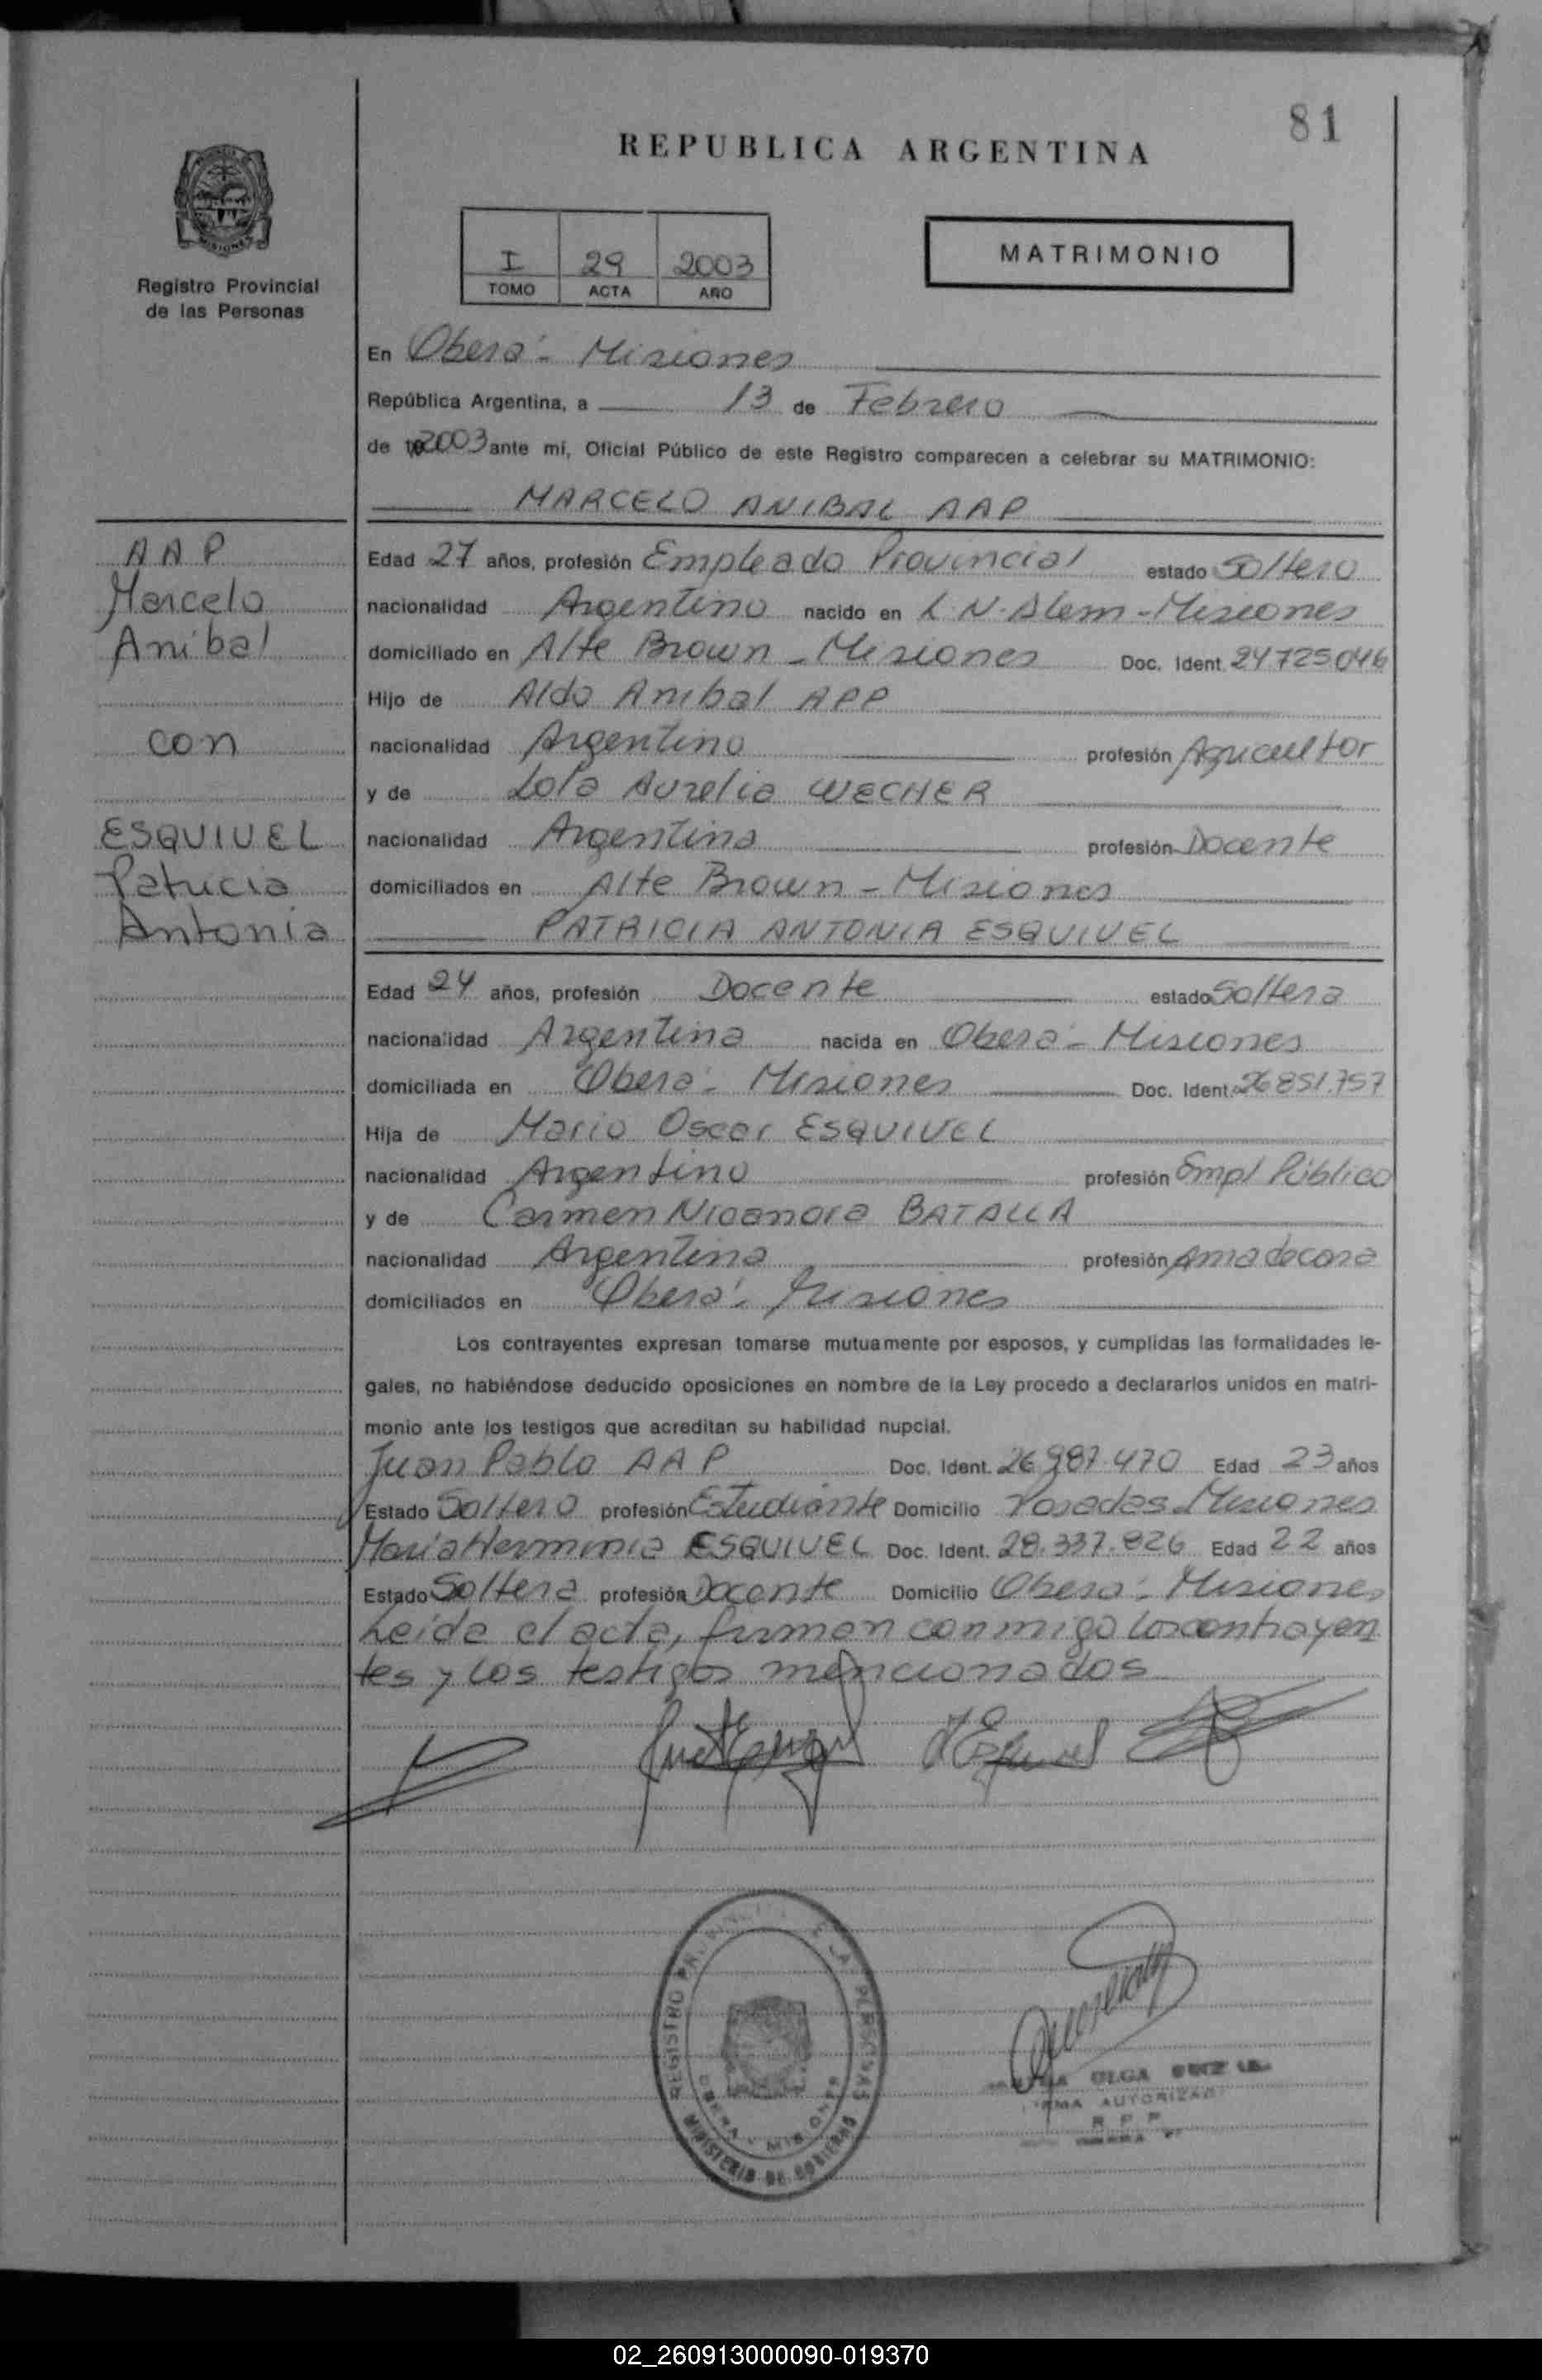 81
REPUBLICA ARGENTINA
I 29 2003
TOMO ACTA AÑO
MATRIMONIO
Registro Provincial
de las Personas
En Oberá - Misiones
República Argentina, a 13 de Febrero
de 2003 ante mí, Oficial Público de este Registro comparecen a celebrar su MATRIMONIO:
MARCELO ANIBAL AAP
AAP
Marcelo
Anibal
con
ESQUIVEL
Patricia
Antonia
Edad 27 años, profesión Empleado Provincial estado Soltero
nacionalidad Argentino nacido en L.N. Alem - Misiones
domiciliado en Alte Brown - Misiones Doc. Ident. 24725046
Hijo de Aldo Anibal APP
nacionalidad Argentino profesión Agricultor
y de Lola Aurelia WECHER
nacionalidad Argentina profesión Docente
domiciliados en Alte Brown - Misiones
PATRICIA ANTONIA ESQUIVEL
Edad 24 años, profesión Docente estado Soltera
nacionalidad Argentina nacida en Oberá - Misiones
domiciliada en Oberá - Misiones Doc. Ident. 26851.757
Hija de Mario Oscar ESQUIVEL
nacionalidad Argentino profesión Empl Público
y de Carmen Nicanora BATALLA
nacionalidad Argentina profesión Ama de casa
domiciliados en Oberá - Misiones
Los contrayentes expresan tomarse mutuamente por esposos, y cumplidas las formalidades le-
gales, no habiéndose deducido oposiciones en nombre de la Ley procedo a declararlos unidos en matri-
monio ante los testigos que acreditan su habilidad nupcial.
Juan Pablo AAP Doc. Ident. 26.987.470 Edad 23 años
Estado Soltero profesión Estudiante Domicilio Posadas - Misiones
Maria Herminia ESQUIVEL Doc. Ident. 28.337.826 Edad 22 años
Estado Soltera profesión Docente Domicilio Oberá - Misiones
Leida el acta, firman conmigo los contrayen
tes y los testigos mencionados
REGISTRO PROVINCIAL DE LAS PERSONAS
OBERA - MISIONES
MINISTERIO DE GOBIERNO
OLGA
FIRMA AUTORIZADA
R P P
02_260913000090-019370